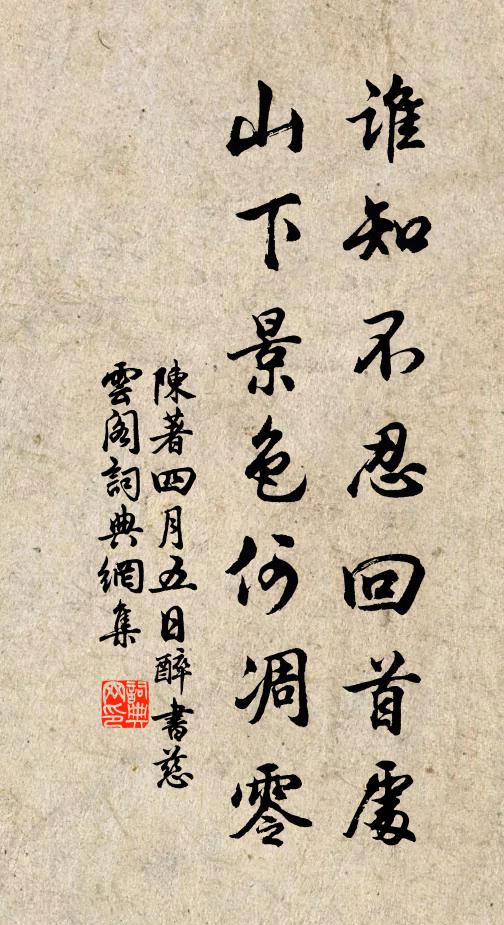 誰知不忍回首處
山下景色何凋零
陳著四月五日醉書慈
雲閣詞典網集
詞典網印